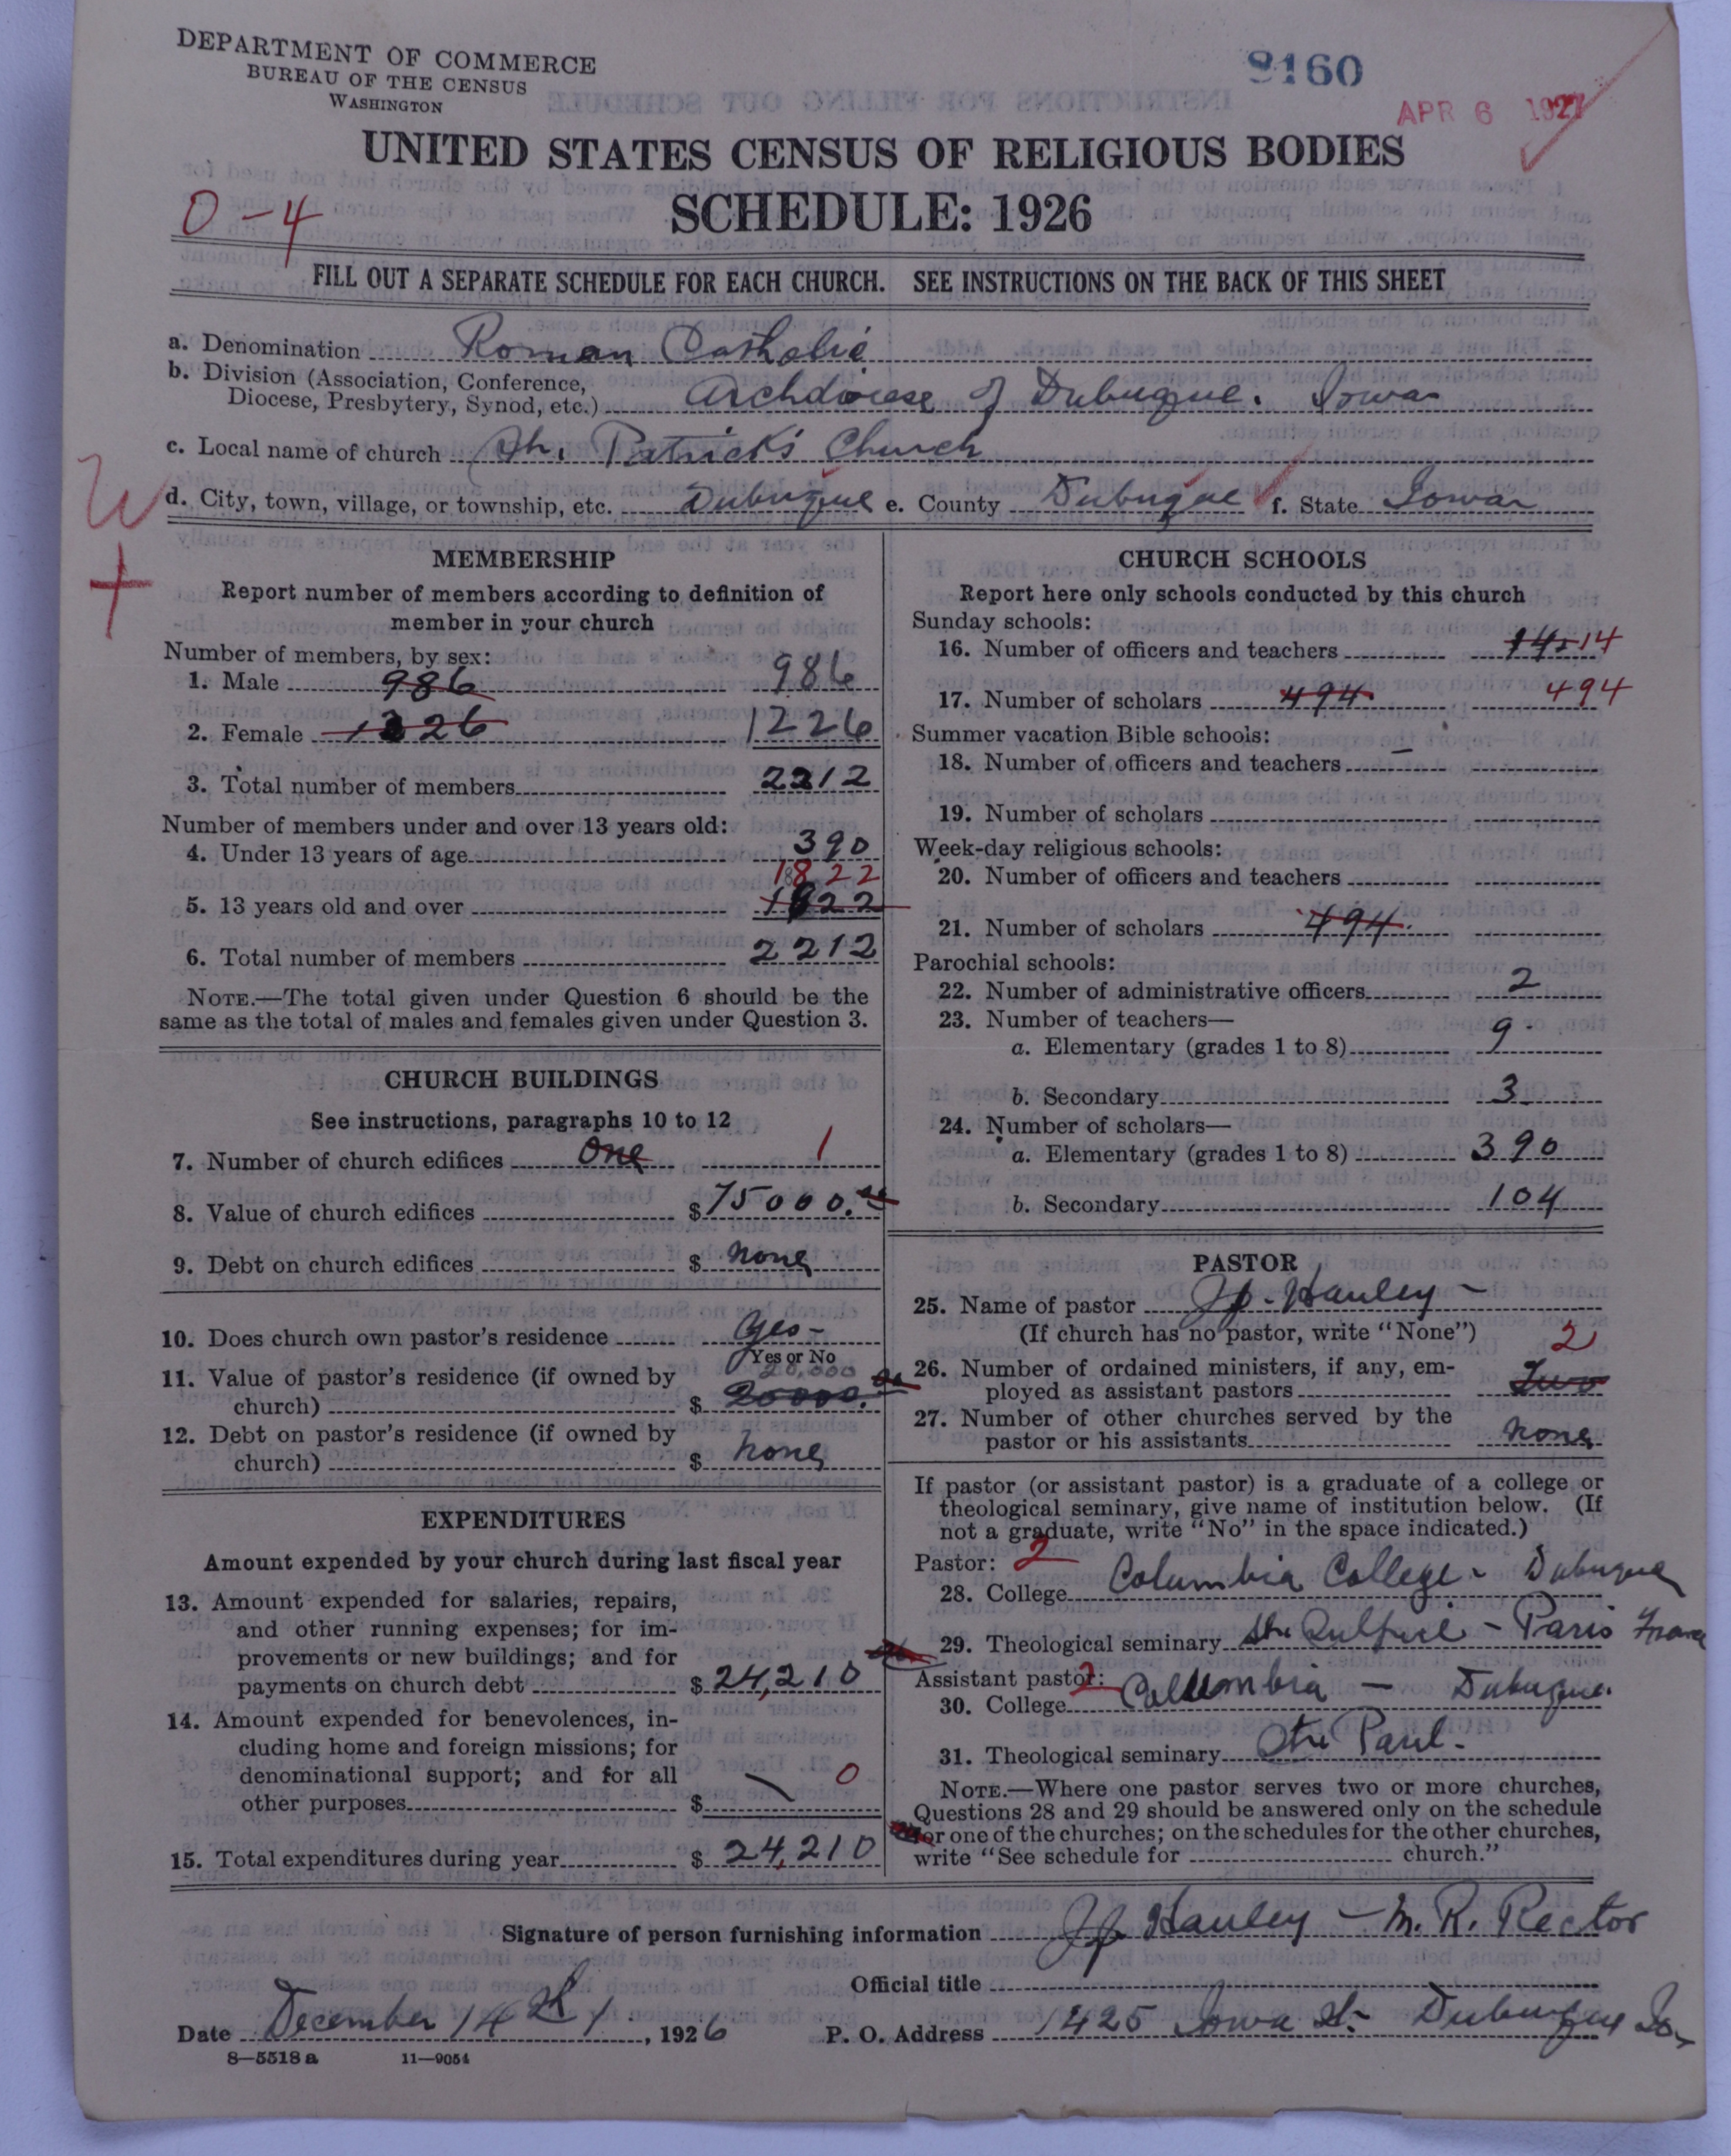 DEPARTMENT OF COMMERCE
BUREAU OF THE CENSUS
WASHINGTON
8160
APR 6 1927
UNITED STATES CENSUS OF RELIGIOUS BODIES
SCHEDULE: 1926
0-4
FILL OUT A SEPARATE SCHEDULE FOR EACH CHURCH. SEE INSTRUCTIONS ON THE BACK OF THIS SHEET
a. Denomination Roman Catholic
b. Division (Association, Conference,
Diocese, Presbytery, Synod, etc.) Archdiocese of Dubuque. Iowa
c. Local name of church St. Patrick's Church
W
d. City, town, village, or township, etc. Dubuque e. County Dubuque f. State Iowa
+
MEMBERSHIP
Report number of members according to definition of
member in your church
Number of members, by sex:
1. Male 986 986
2. Female 1326 1226
3. Total number of members 2212
Number of members under and over 13 years old:
4. Under 13 years of age 390
1822
5. 13 years old and over 1822
6. Total number of members 2212
NOTE.—The total given under Question 6 should be the
same as the total of males and females given under Question 3.
CHURCH BUILDINGS
See instructions, paragraphs 10 to 12
7. Number of church edifices One 1
8. Value of church edifices $75000.
9. Debt on church edifices $ none
10. Does church own pastor's residence Yes-
Yes or No
11. Value of pastor's residence (if owned by 20,000
church) $ 20000.
12. Debt on pastor's residence (if owned by
church) $ none
EXPENDITURES
Amount expended by your church during last fiscal year
13. Amount expended for salaries, repairs,
and other running expenses; for im-
provements or new buildings; and for
payments on church debt $ 24,210
14. Amount expended for benevolences, in-
cluding home and foreign missions; for
denominational support; and for all
other purposes $ 0
15. Total expenditures during year $ 24,210
CHURCH SCHOOLS
Report here only schools conducted by this church
Sunday schools:
16. Number of officers and teachers 14 14
17. Number of scholars 494 494
Summer vacation Bible schools:
18. Number of officers and teachers –
19. Number of scholars
Week-day religious schools:
20. Number of officers and teachers
21. Number of scholars 494
Parochial schools:
22. Number of administrative officers 2
23. Number of teachers—
a. Elementary (grades 1 to 8) 9
b. Secondary 3
24. Number of scholars—
a. Elementary (grades 1 to 8) 390
b. Secondary 104
PASTOR
25. Name of pastor J.P. Hanley –
(If church has no pastor, write "None")
2
26. Number of ordained ministers, if any, em-
ployed as assistant pastors Two
27. Number of other churches served by the
pastor or his assistants none
If pastor (or assistant pastor) is a graduate of a college or
theological seminary, give name of institution below. (If
not a graduate, write "No" in the space indicated.)
Pastor: 2
28. College Columbia College - Dubuque
29. Theological seminary St. Sulpice - Paris France
Assistant pastor: 2
30. College Columbia — Dubuque.
31. Theological seminary St. Paul.
NOTE.—Where one pastor serves two or more churches,
Questions 28 and 29 should be answered only on the schedule
for one of the churches; on the schedules for the other churches,
write "See schedule for church."
Signature of person furnishing information J.P. Hanley — M. R. Rector
Official title
Date December 14th, 1926 P. O. Address 1425 Iowa St. Dubuque Ia.
8—5518 a 11—9054